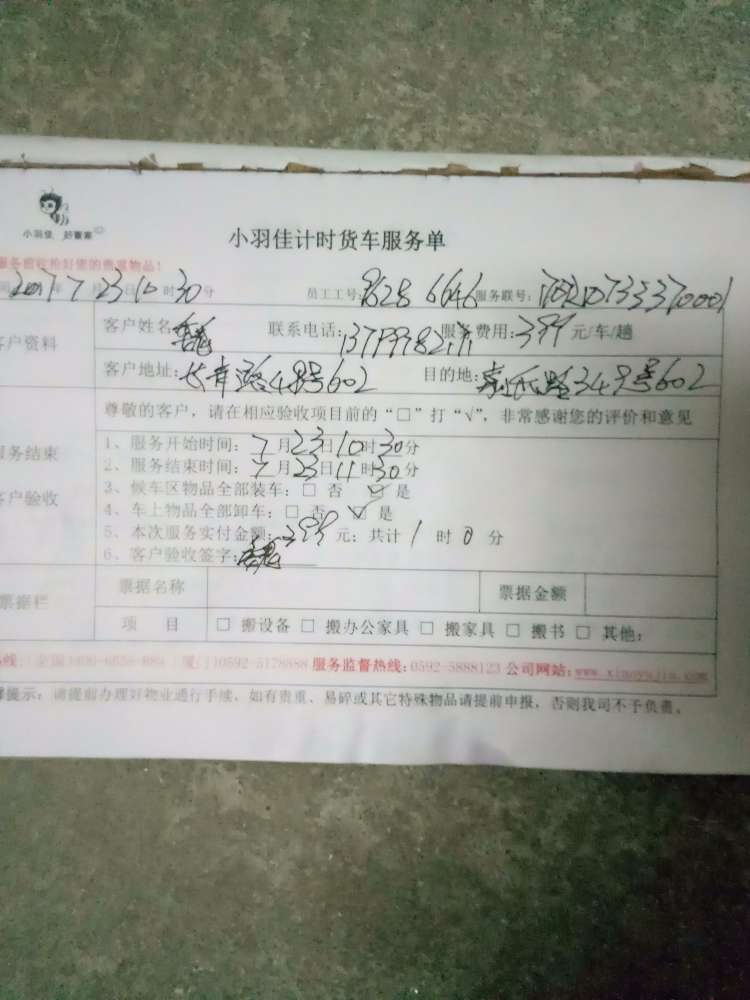 小羽佳 好管家
小羽佳计时货车服务单
2017 7 23 10 时 30 分 员工工号: 9628 6646 服务联号:
客户资料
客户姓名 联系电话: 服务费用: 399 元/车/趟
客户地址: 长青路48号602 目的地: 349号602
尊敬的客户，请在相应验收项目前的“□”打“√”，非常感谢您的评价和意见
服务结束
客户验收
1、服务开始时间: 7月23日10时30分
2、服务结束时间: 7月23日11时30分
3、候车区物品全部装车: □ 否 ☑ 是
4、车上物品全部卸车: □ 否 ☑ 是
5、本次服务实付金额: 399 元: 共计 1 时 0 分
6、客户验收签字:
票据栏
票据名称 票据金额
项 目 □ 搬设备 □ 搬办公家具 □ 搬家具 □ 搬书 □ 其他:
0592-5178888 服务监督热线: 0592-5888123 公司网站: www.xiaoyujia.com
提示: 请提前办理好物业通行手续，如有贵重、易碎或其它特殊物品请提前申报，否则我司不予负责。